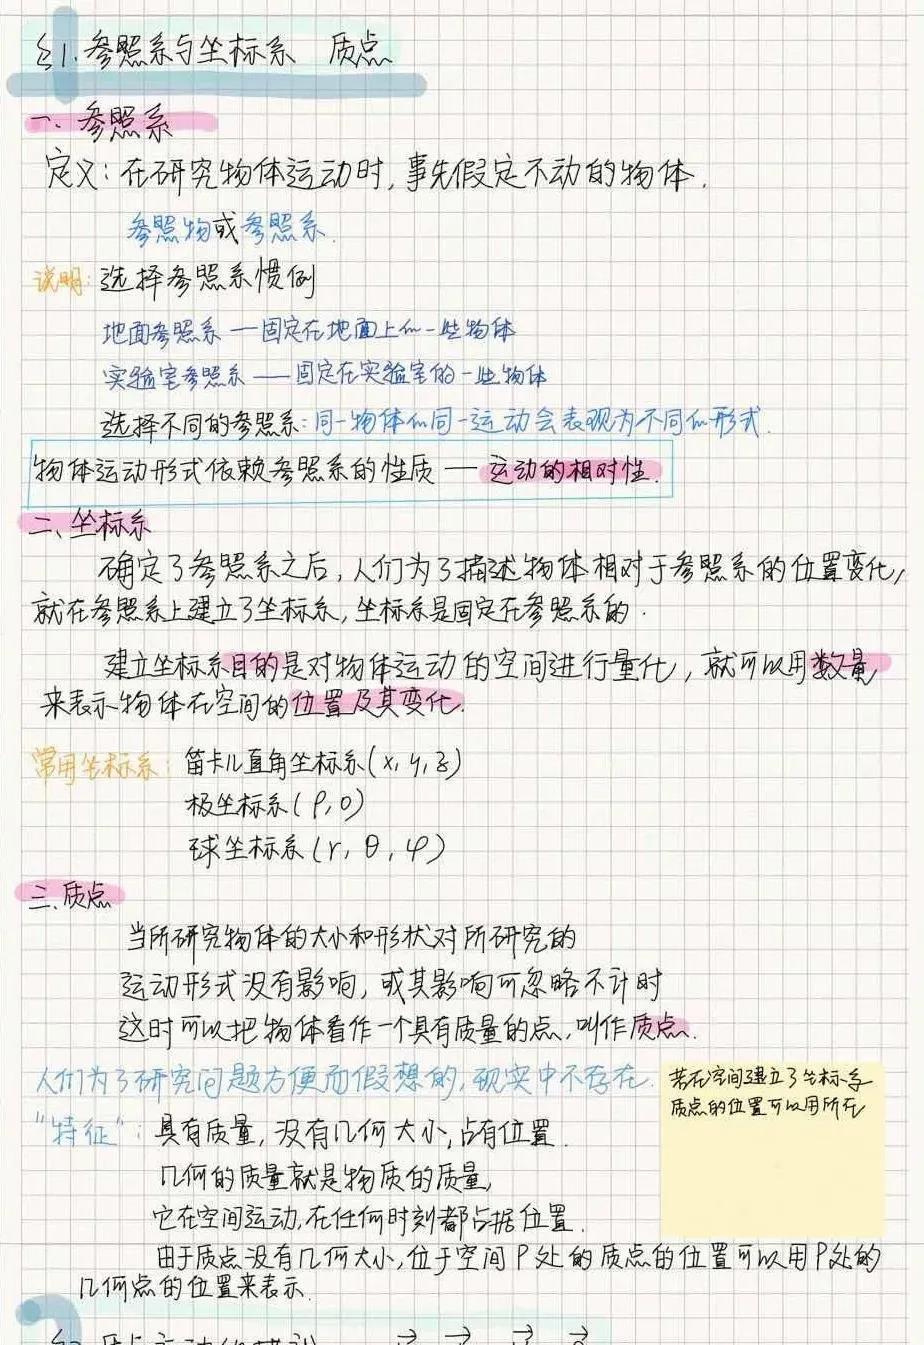 §1.参照系与坐标系 质点
一、参照系
定义:在研究物体运动时,事先假定不动的物体.
参照物或参照系.
说明:选择参照系惯例
地面参照系—固定在地面上的一些物体
实验室参照系——固定在实验室的一些物体
选择不同的参照系:同一物体的同一运动会表现为不同的形式.
物体运动形式依赖参照系的性质—运动的相对性.
二、坐标系
确定了参照系之后,人们为了描述物体相对于参照系的位置变化,
就在参照系上建立了坐标系,坐标系是固定在参照系的.
建立坐标系目的是对物体运动的空间进行量化,就可以用数量
来表示物体在空间的位置及其变化.
常用坐标系:笛卡儿直角坐标系(x,y,z)
极坐标系(ρ,θ)
球坐标系(r,θ,φ)
三.质点
当所研究物体的大小和形状对所研究的
运动形式没有影响,或其影响可忽略不计时
这时可以把物体看作一个具有质量的点,叫作质点.
人们为了研究问题方便而假想的,现实中不存在.
若在空间建立了坐标系
质点的位置可以用所在
"特征":具有质量,没有几何大小,占有位置.
几何的质量就是物质的质量,
它在空间运动,在任何时刻都占据位置.
由于质点没有几何大小,位于空间P处的质点的位置可以用P处的
几何点的位置来表示.